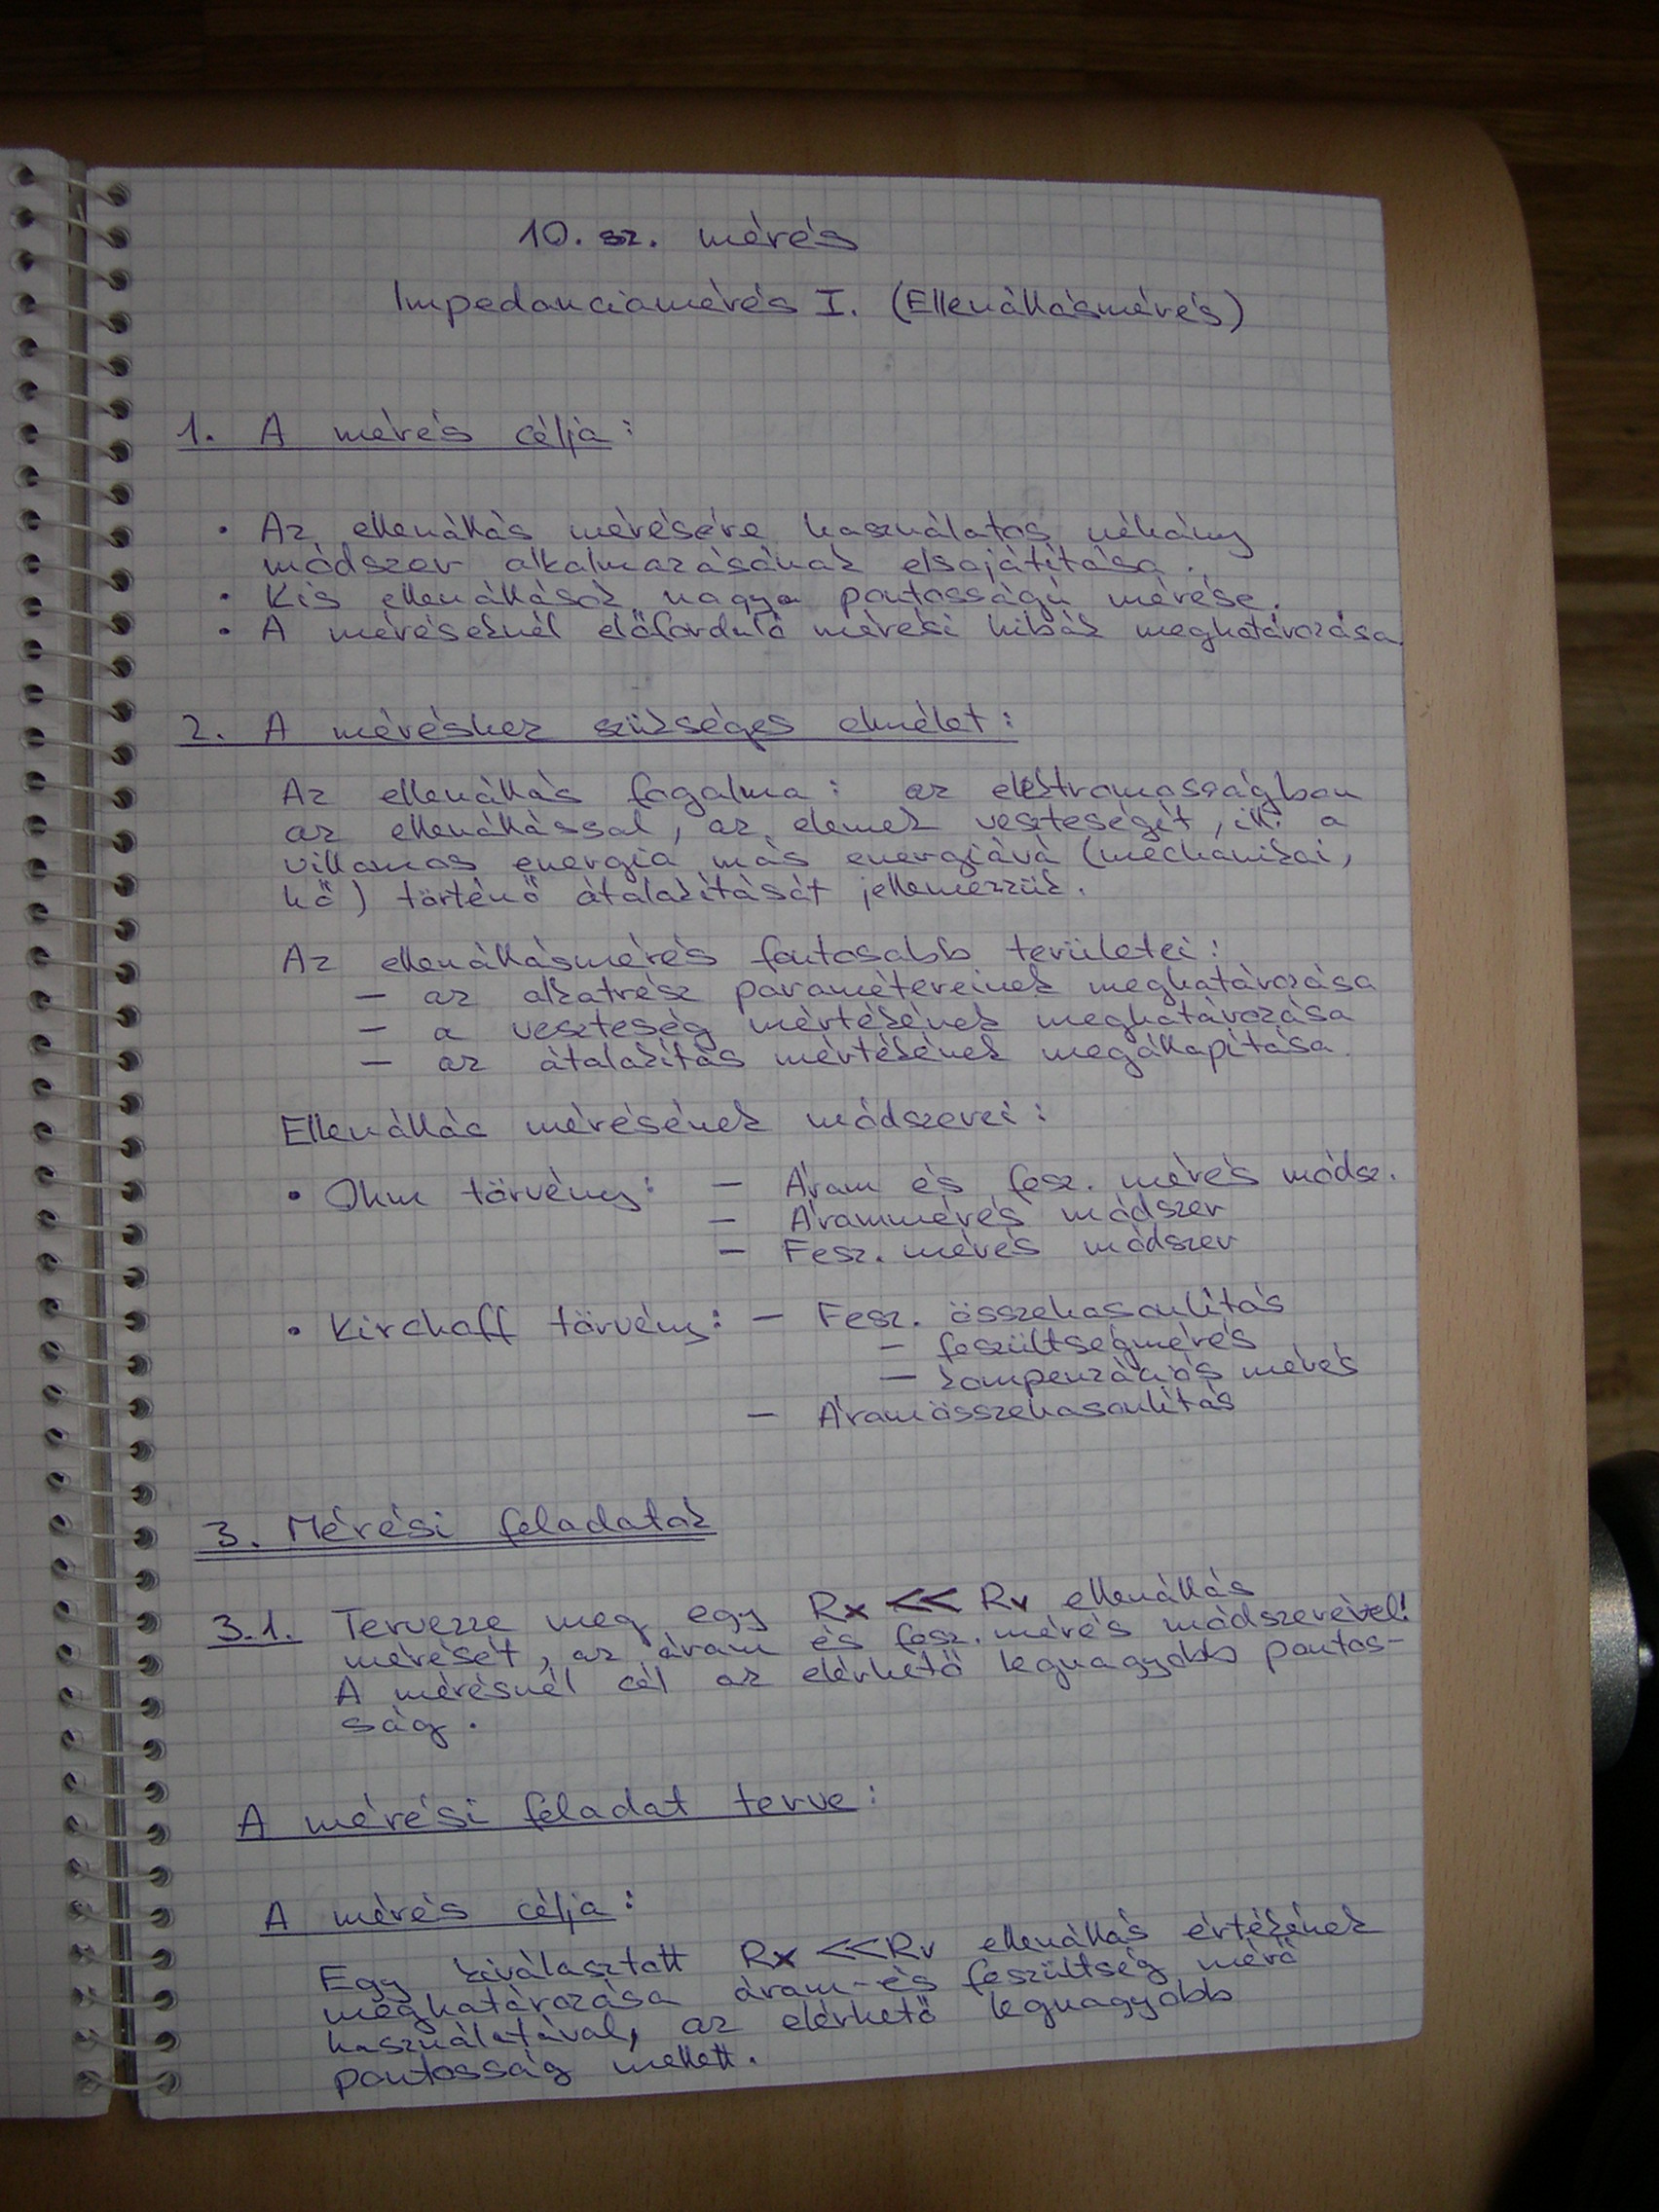 10. sz. mérés
Impedanciamérés I. (Ellenállásmérés)
1. A mérés célja:
• Az ellenállás mérésére használatos néhány
módszer alkalmazásának elsajátítása.
• Kis ellenállások nagy pontosságú mérése.
• A méréseknél előforduló mérési hibák meghatározása
2. A méréshez szükséges elmélet:
Az ellenállás fogalma: az elektromosságban
az ellenállással, az elemek veszteségét, ill. a
villamos energia más energiává (mechanikai,
hő) történő átalakítását jellemezzük.
Az ellenállásmérés fontosabb területei:
– az alkatrész paramétereinek meghatározása
– a veszteség mértékének meghatározása
– az átalakítás mértékének megállapítása.
Ellenállás mérésének módszerei:
• Ohm törvény: – Áram és fesz. mérés módsz.
– Árammérés módszer
– Fesz. mérés módszer
• Kirchoff törvény: – Fesz. összehasonlítás
– feszültségmérés
– kompenzációs mérés
– Áramösszehasonlítás
3. Mérési feladatok
3.1. Tervezze meg egy Rx << Rv ellenállás
mérését, az áram és fesz. mérés módszerével!
A mérésnél cél az elérhető legnagyobb pontos-
ság.
A mérési feladat terve:
A mérés célja:
Egy kiválasztott Rx << Rv ellenállás értékének
meghatározása áram- és feszültség mérő
használatával, az elérhető legnagyobb
pontosság mellett.